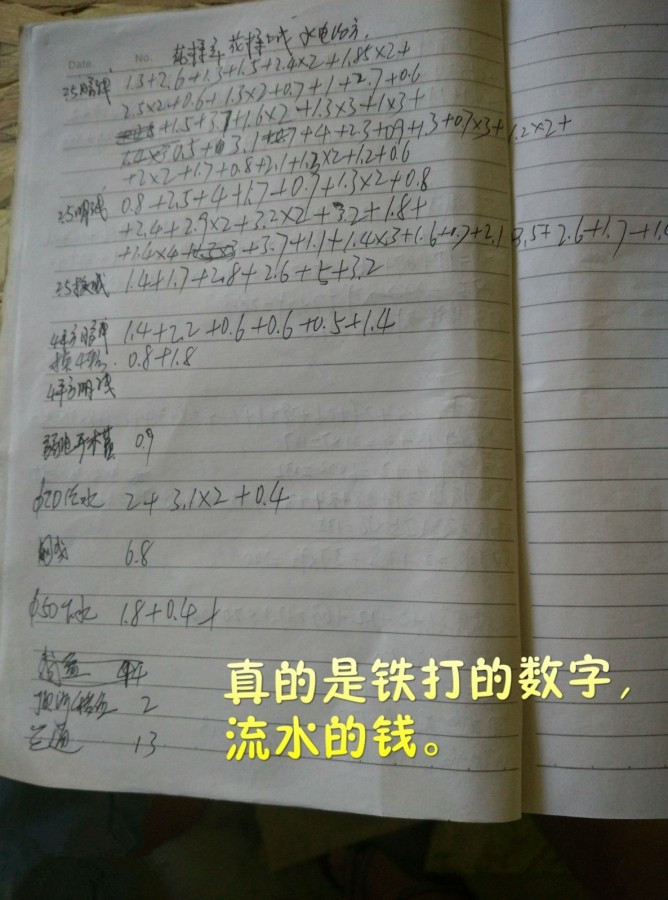 Date.
No.
花样年花样城 水电
2.5 1.3+2.6+1.3+1.5+2.4×2+1.85×2+
2.5×2+0.6+1.3×2+0.7+1+2.7+0.6
+1.5+3.7+1.6×2+1.3×3+1×3+
0.5+ 3.1+ +4+2.3+0.9+1.3+0.7×3+1.2×2+
+2×2+1.7+0.8+2.1+1.3×2+1.2+0.6
2.5明线 0.8+2.5+4+1.7+0.7+1.3×2+0.8
+2.4+2.9×2+3.2×2+3.2+1.8+
+1.4×4 +3.7+1.1+1.4×3+1.6+0.7+2.1 3.5+2.6+1.7
2.5换线 1.4+1.7+2.8+2.6+5+3.2
4平方 1.4+2.2+0.6+0.6+0.5+1.4
0.8+1.8
4平方明线
弱电 0.9
φ20 水 2+3.1×2+0.4
网线 6.8
φ50 水 1.8+0.4+
44
2
13
真的是铁打的数字，
流水的钱。